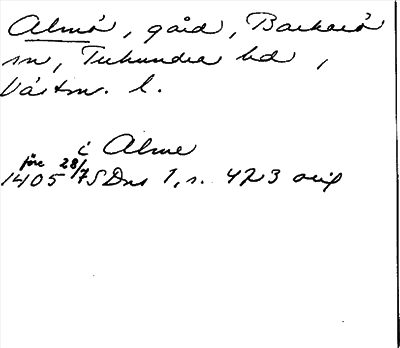 Almö, gård, Barkarö
sn, Tuhundra hd,
Västm. l.
i Alme
1405 före 28/7 SDns 1, s. 423 orig